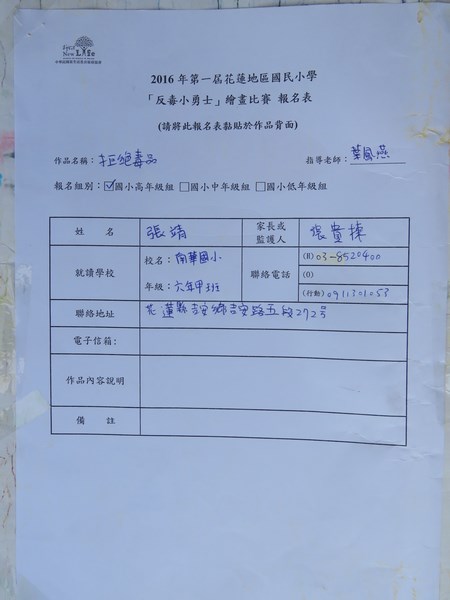 April
New Life
2016 年第一屆花蓮地區國民小學
「反毒小勇士」繪畫比賽 報名表
(請將此報名表黏貼於作品背面)
作品名稱：拒絕毒品 指導老師：葉風燕
報名組別：☑國小高年級組 □國小中年級組 □國小低年級組
姓 名 張靖 家長或監護人 張貴棟
就讀學校 校名：南華國小 聯絡電話 (H) 03-8520400
(O)
年級：六年甲班 (行動) 0911301053
聯絡地址 花蓮縣吉安鄉吉安路五段272号
電子信箱:
作品內容說明
備 註